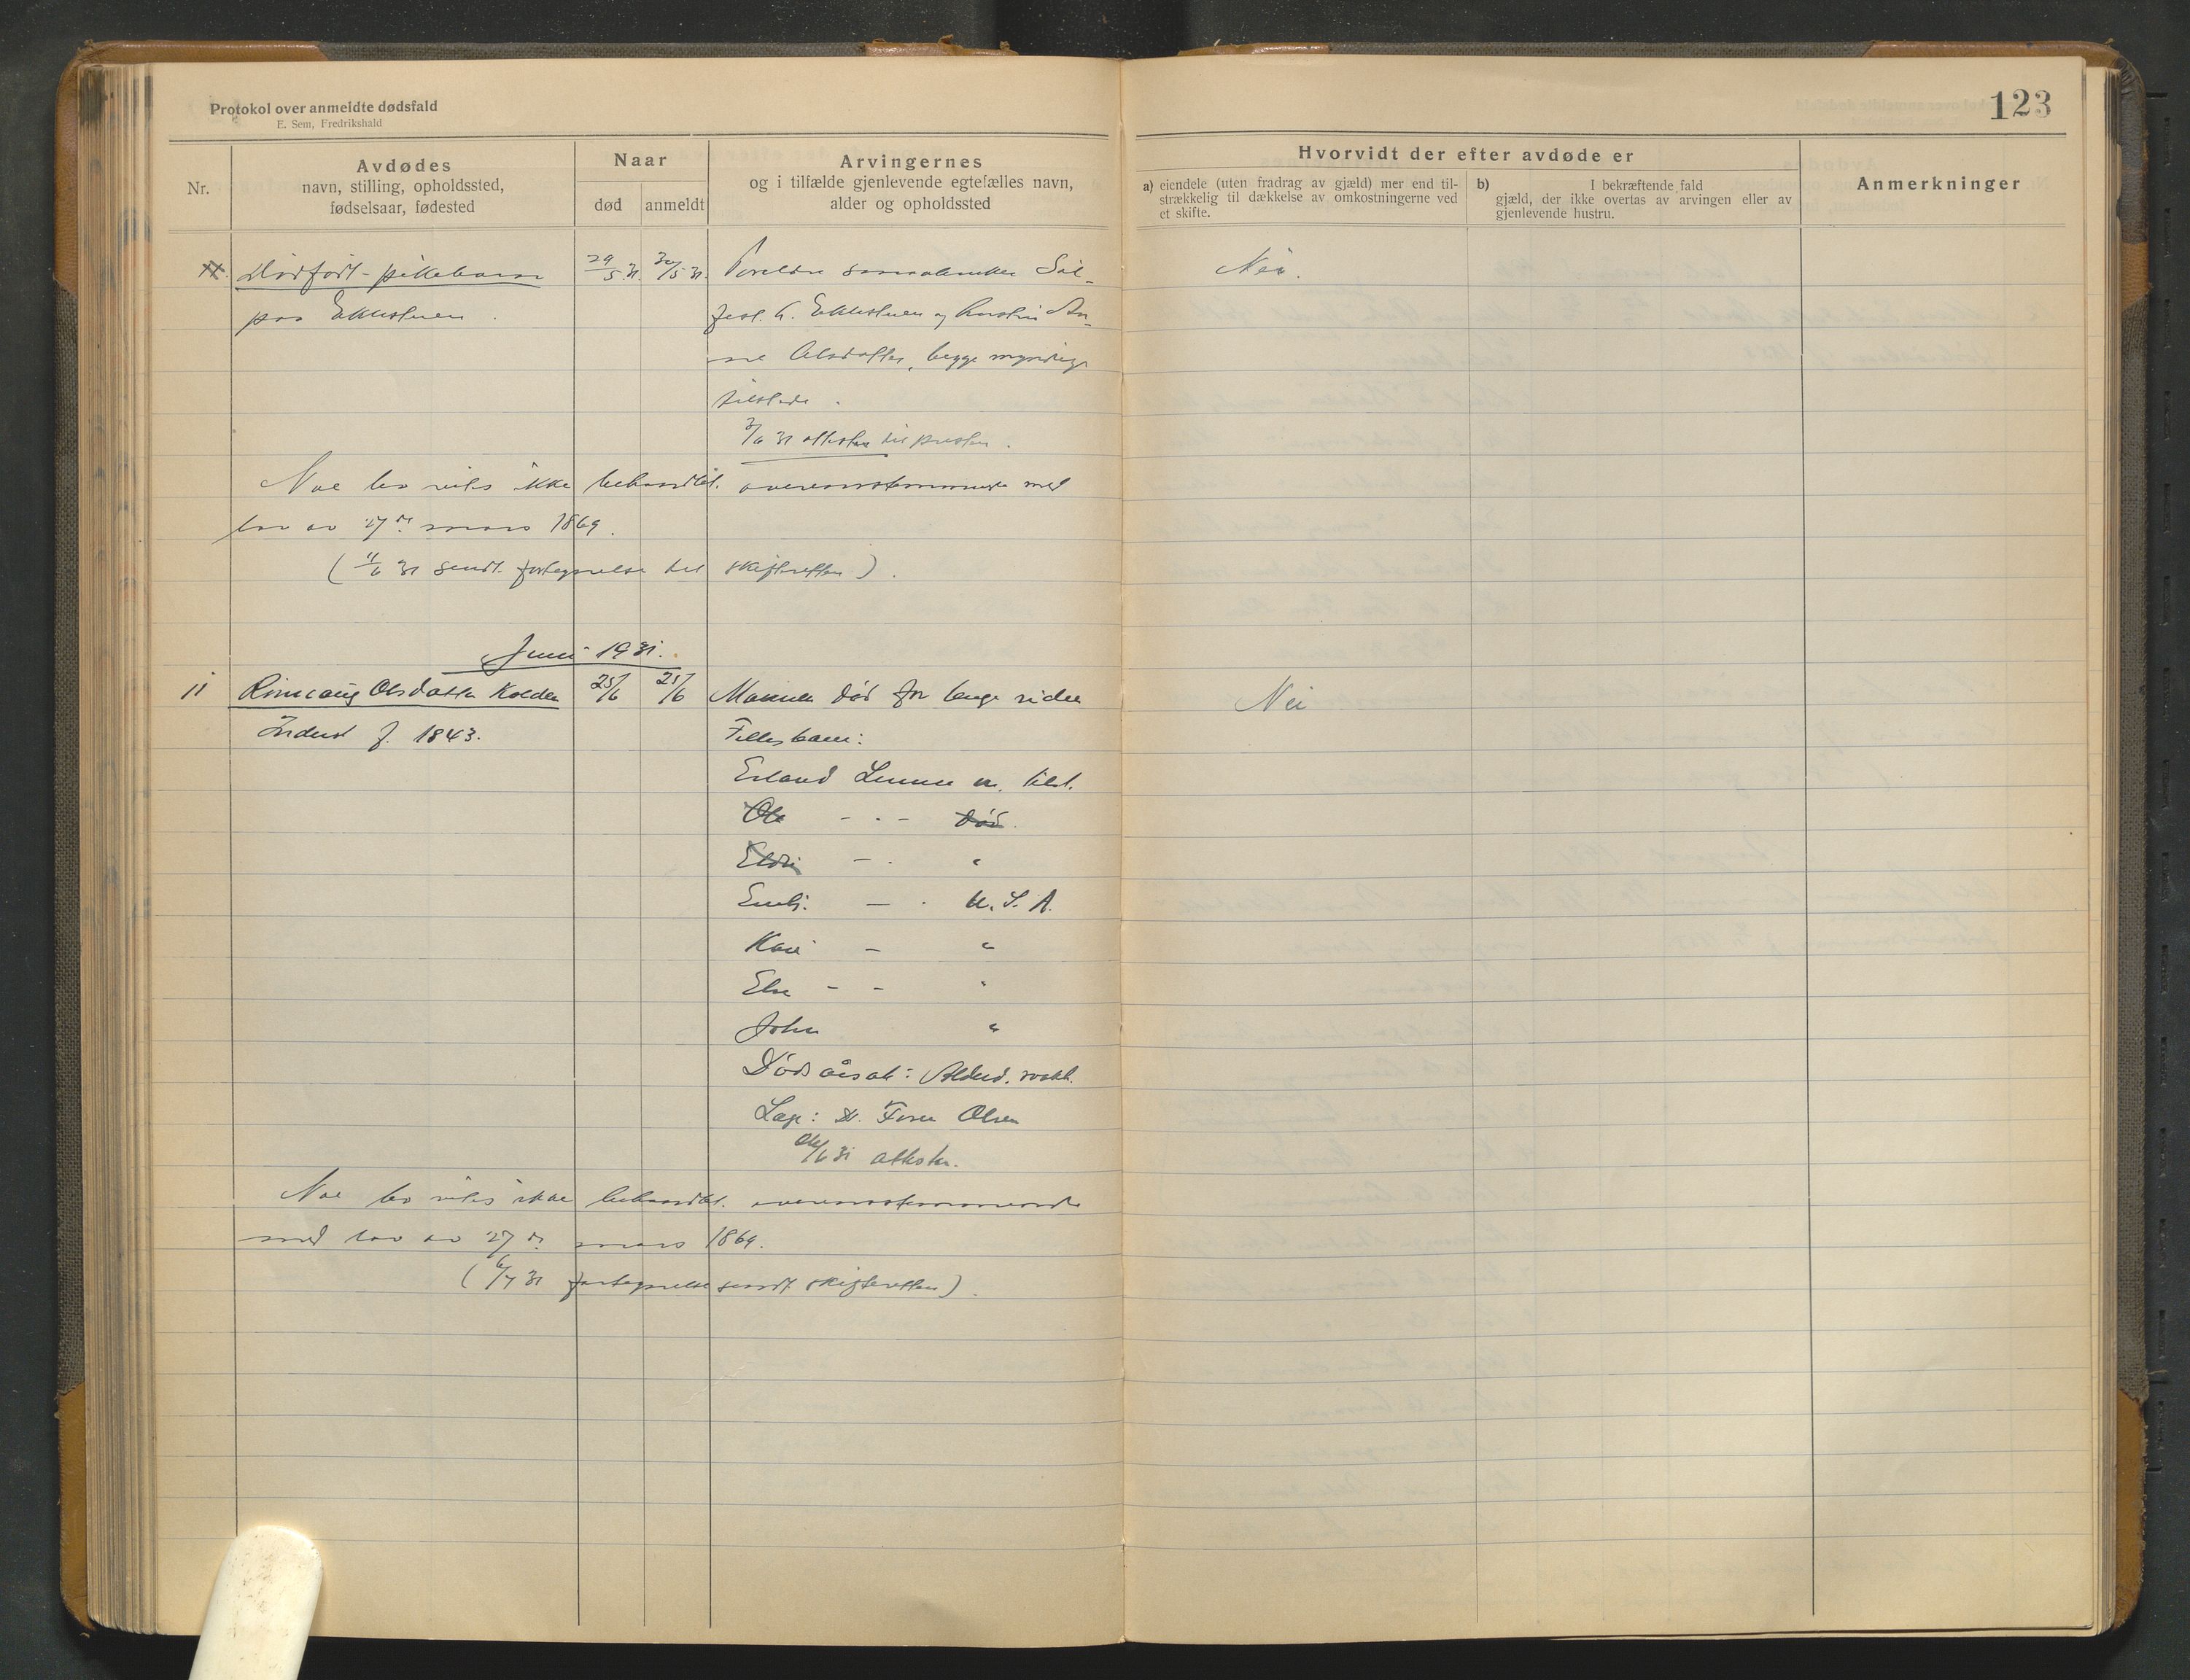 Protokol over anmeldte dødsfald
E. Sem, Fredrikshald
123
Nr.
Avdødes
navn, stilling, opholdssted,
fødselsaar, fødested
Naar
død
anmeldt
Arvingernes
og i tilfælde gjenlevende egtefælles navn,
alder og opholdssted
Hvorvidt der efter avdøde er
a) eiendele (uten fradrag av gjæld) mer end til-
strækkelig til dækkelse av omkostningerne ved
et skifte.
b) I bekræftende fald
gjæld, der ikke overtas av arvingen eller av
gjenlevende hustru.
Anmerkninger
Dødfødt pikebarn 29/5 31. 30/5 31. Foreldre Sal- Nei.
paa Ekkestuen. fest. Ekkestuen og hustru An-
ne Olsdatter, begge myndige
tilstede.
3/6 31 attester til presten.
Noe bo vites ikke behandlet overensstemmende med
lov av 27de mars 1869.
(4/6 31 sendt fortegnelse til skifteretten).
Juni 1931.
11 Olsdatter Kolden 25/6 25/6 Mannen død for lenge siden Nei
Inderst f. 1843. Felles barn:
Erland m. tilst.
Ole - - - død.
Eldri - - "
- - U. S. A.
Kari - "
Else - - "
John "
Dødsårsak: Alderd. svakh.
Lege: Dr. Olsen
/6 31 attester.
Noe bo vites ikke behandlet overensstemmende
med lov av 27de mars 1869.
(6/7 31 fortegnelse sendt skifteretten).